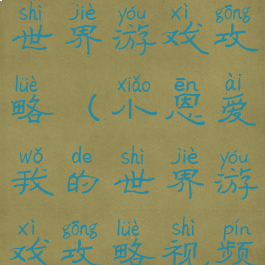 shì jiè yóu xì gōng
世界游戏攻
lüè xiǎo ēn ài
略（小恩爱
wǒ de shì jiè yóu
我的世界游
xì gōng lüè shì pín
戏攻略视频